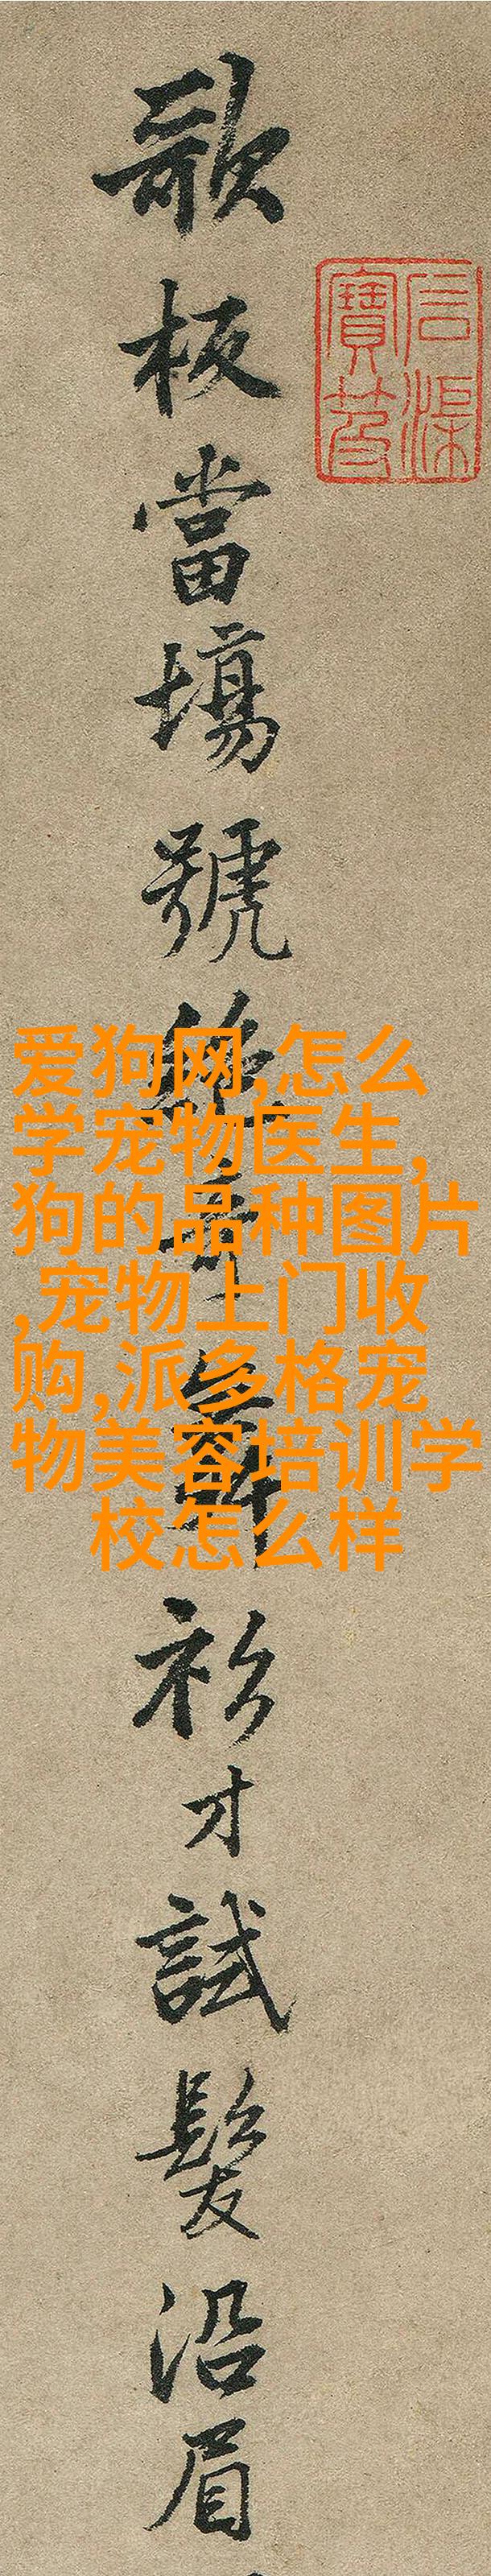 石渠
寶笈
歌板當場號絕奇舞衫才試髮沿眉
爱狗网,怎么
学宠物医生,
狗的品种图片
,宠物上门收
购,派多格宠
物美容培训学
校怎么样